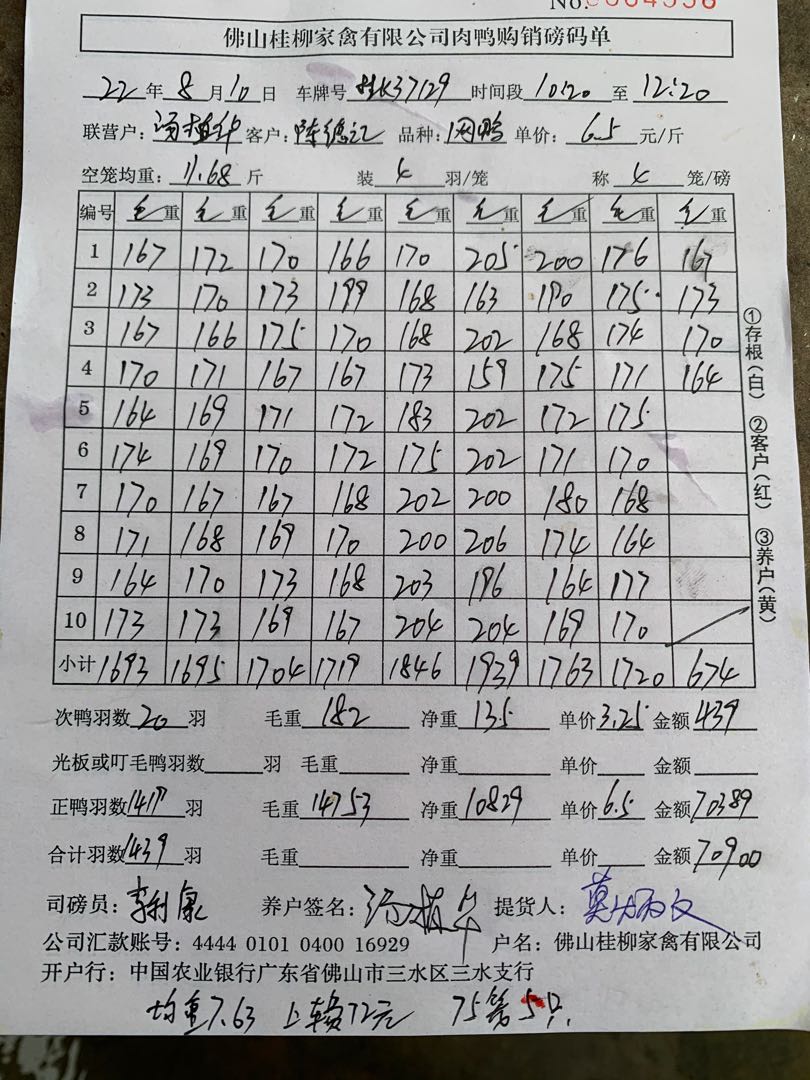 No.
佛山桂柳家禽有限公司肉鸭购销磅码单
22年8月10日 车牌号 K37129 时间段 10:20 至 12:20
联营户: 汤植华 客户: 陈德记 品种: 网鸭 单价: 6.5 元/斤
空笼均重: 11.68 斤 装 4 羽/笼 称 4 笼/磅
编号 毛重 毛重 毛重 毛重 毛重 毛重 毛重 毛重 毛重
1 167 172 170 166 170 205 200 176 167
2 173 170 173 199 168 163 190 175 173
3 167 166 175 170 168 202 168 174 170
4 170 171 167 167 173 159 175 171 164
5 164 169 171 172 183 202 172 175
6 174 169 170 172 175 202 171 170
7 170 167 167 168 202 200 180 168
8 171 168 169 170 200 206 174 164
9 164 170 173 168 203 196 164 177
10 173 173 169 167 204 204 169 170
小计 1693 1695 1704 1719 1846 1939 1763 1720 674
次鸭羽数 20 羽 毛重 182 净重 135 单价 3.25 金额 439
光板或叮毛鸭羽数 羽 毛重 净重 单价 金额
正鸭羽数 1419 羽 毛重 14753 净重 10829 单价 6.5 金额 70389
合计羽数 1439 羽 毛重 净重 单价 金额 70900
司磅员: 李利康 养户签名: 汤植华 提货人:
公司汇款账号: 4444 0101 0400 16929 户名: 佛山桂柳家禽有限公司
开户行: 中国农业银行广东省佛山市三水区三水支行
均重7.63 上 72元 75笼5只
①存根(白) ②客户(红) ③养户(黄)